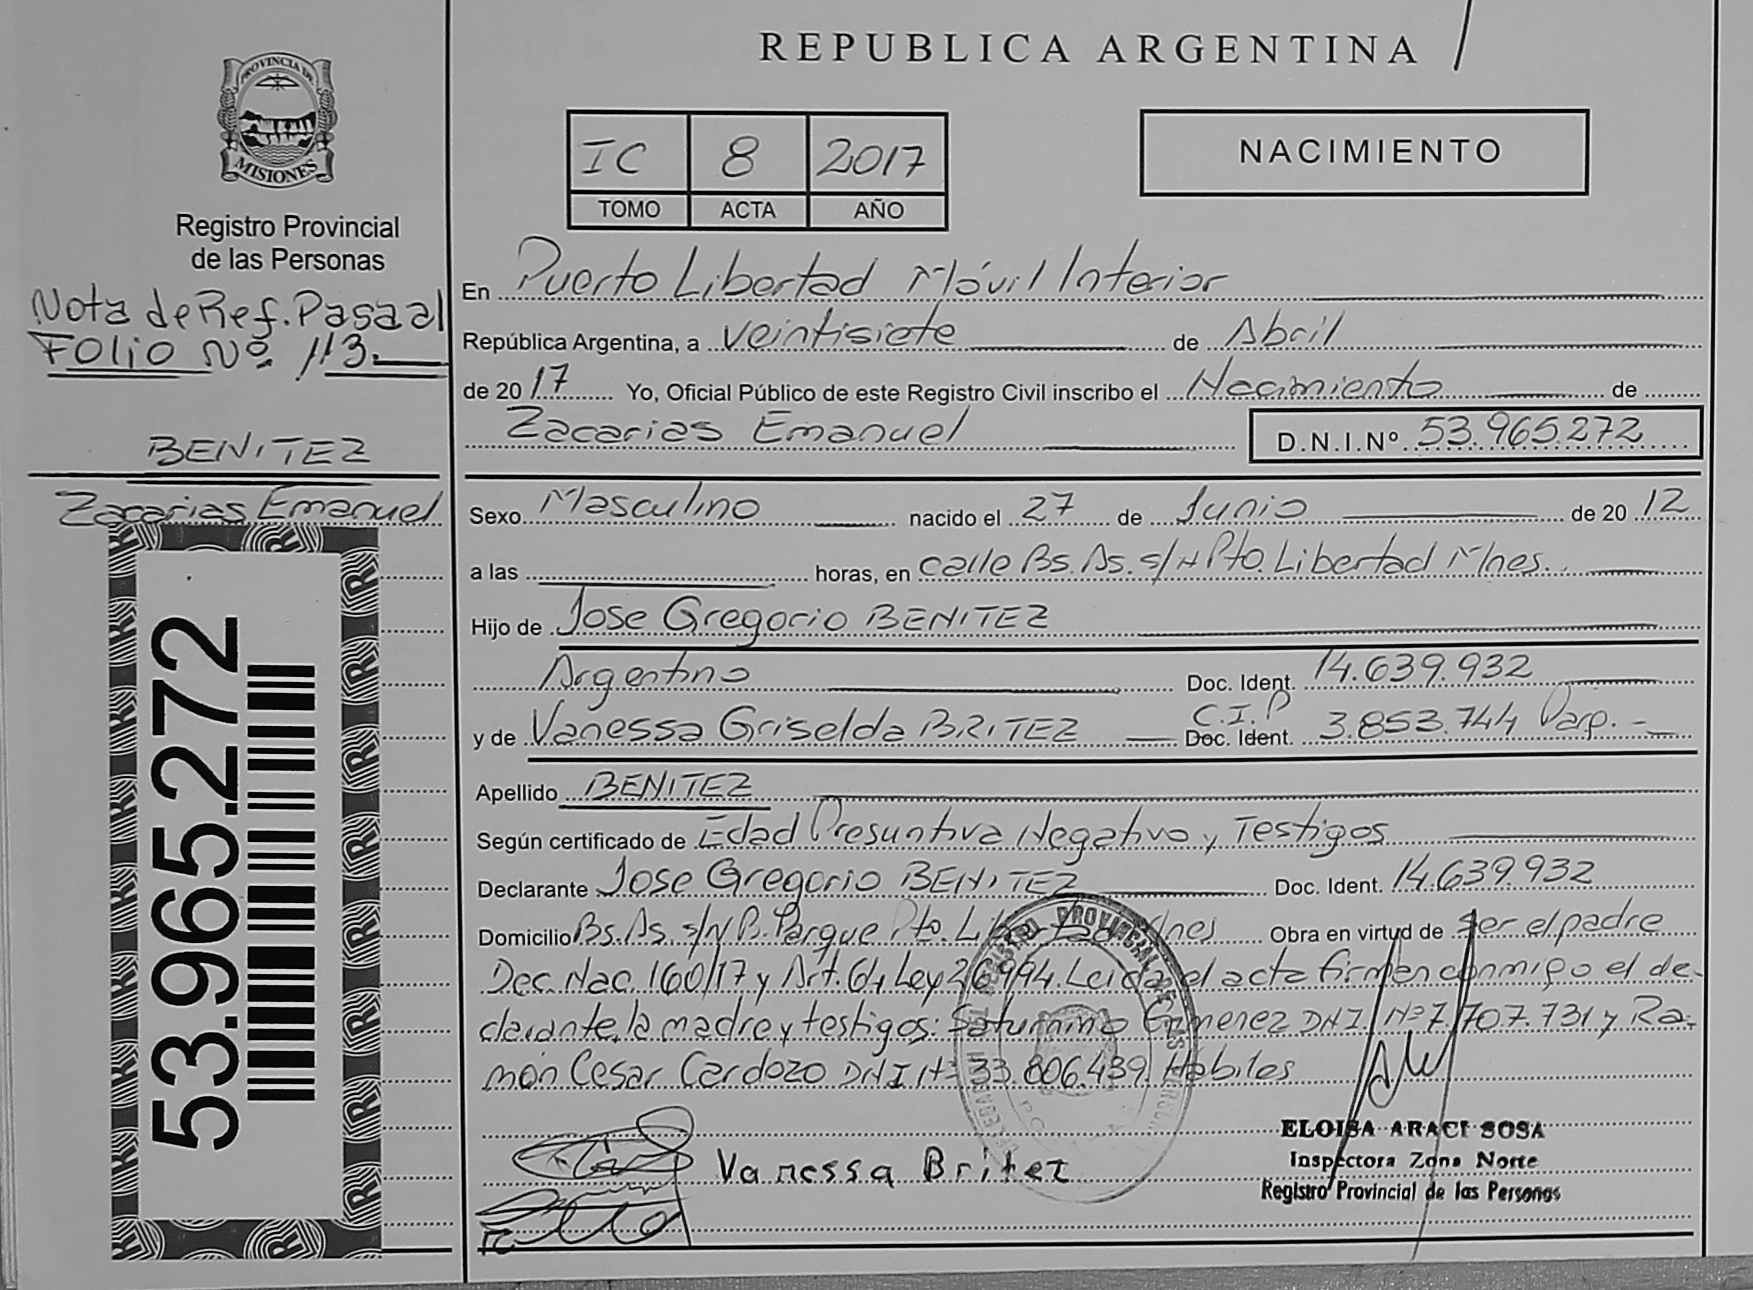 REPUBLICA ARGENTINA
PROVINCIA DE
MISIONES
Registro Provincial
de las Personas
Nota de Ref. Pasa al
Folio Nº 113.
BENITEZ
Zacarias Emanuel
53.965.272
IC 8 2017
TOMO ACTA AÑO
NACIMIENTO
En Puerto Libertad Móvil Interior
República Argentina, a veintisiete de Abril
de 2017 Yo, Oficial Público de este Registro Civil inscribo el Nacimiento de
Zacarias Emanuel D.N.I.Nº 53.965.272
Sexo Masculino nacido el 27 de Junio de 2012
a las horas, en calle Bs. As. s/n Pto. Libertad Mnes.
Hijo de Jose Gregorio BENITEZ
Argentino Doc. Ident. 14.639.932
C.I.P
y de Vanessa Griselda BRITEZ Doc. Ident. 3.853.744 Parp.-
Apellido BENITEZ
Según certificado de Edad Presuntiva Negativo y Testigos
Declarante Jose Gregorio BENITEZ Doc. Ident. 14.639.932
Domicilio Bs. As. s/N B. Parque Pto. Libertad Mnes Obra en virtud de ser el padre
Dec. Nac. 160/17 y Art. 64 Ley 26.994. Leida el acta firman conmigo el de-
clarante, la madre y testigos: Saturnino Gimenez DNI Nº 7.707.731 y Ra-
món Cesar Cardozo DNI Nº 33.806.439 Habiles
Vanessa Britez
ELOISA ARACI SOSA
Inspectora Zona Norte
Registro Provincial de las Personas